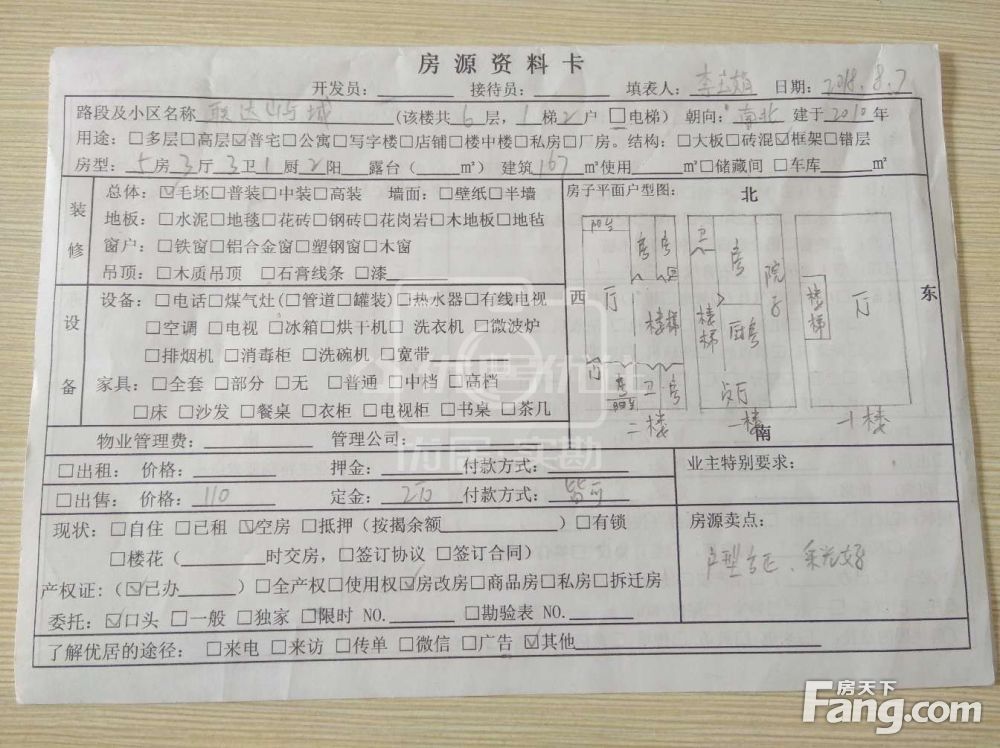 房源资料卡
开发员：________ 接待员：________ 填表人：李 日期：2018.8.7
路段及小区名称 联达山与城 (该楼共6层，1梯2户 □电梯) 朝向：南北 建于2010年
用途：□多层□高层☑普宅□公寓□写字楼□店铺□楼中楼□私房□厂房。结构：□大板□砖混☑框架□错层
房型：5房3厅3卫1厨2阳 露台（____㎡）建筑167㎡使用____㎡□储藏间 □车库____㎡
装修
总体：☑毛坯□普装□中装□高装 墙面：□壁纸□半墙
地板：□水泥□地毯□花砖□钢砖□花岗岩□木地板□地毡
窗户：□铁窗□铝合金窗□塑钢窗□木窗
吊顶：□木质吊顶 □石膏线条 □漆______
设备
设备：□电话□煤气灶(□管道□罐装)□热水器□有线电视
□空调 □电视 □冰箱□烘干机□ 洗衣机 □微波炉
□排烟机 □消毒柜 □洗碗机 □宽带______
家具：□全套 □部分 □无 □普通 □中档 □高档
□床 □沙发 □餐桌 □衣柜 □电视柜 □书桌 □茶几
房子平面户型图：
北
西
东
南
阳台 房 房 卫 厅 楼梯 厅 房 阳台 卫 房
二楼
卫 房 院子 楼梯 厨房 客厅
一楼
楼梯 厅
-1楼
物业管理费：________ 管理公司：________
□出租： 价格：________ 押金：________ 付款方式：________
□出售： 价格：110 定金：2万 付款方式：皆可
业主特别要求：
现状：□自住 □已租 ☑空房 □抵押（按揭余额________）□有锁
□楼花（________时交房，□签订协议 □签订合同）
产权证：（☑已办____）□全产权□使用权☑房改房□商品房□私房□拆迁房
委托：☑口头 □一般 □独家 □限时 NO.______ □勘验表 NO.______
房源卖点：
户型方正、采光好
了解优居的途径： □来电 □来访 □传单 □微信 □广告 ☑其他________
房天下
Fang.com